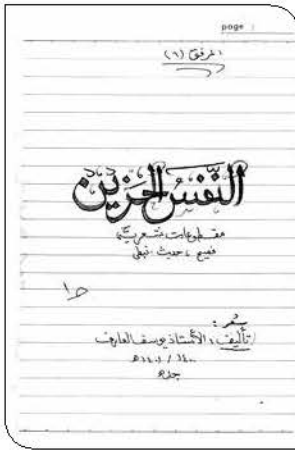 page
المرفق (٦)
النفس الحزين
مقطوعات شعرية
فصيح، حديث، نبطي
شعر:
تأليف: الأستاذ يوسف العارف
١٤٠٠ / ١٤٠١هـ
جدة